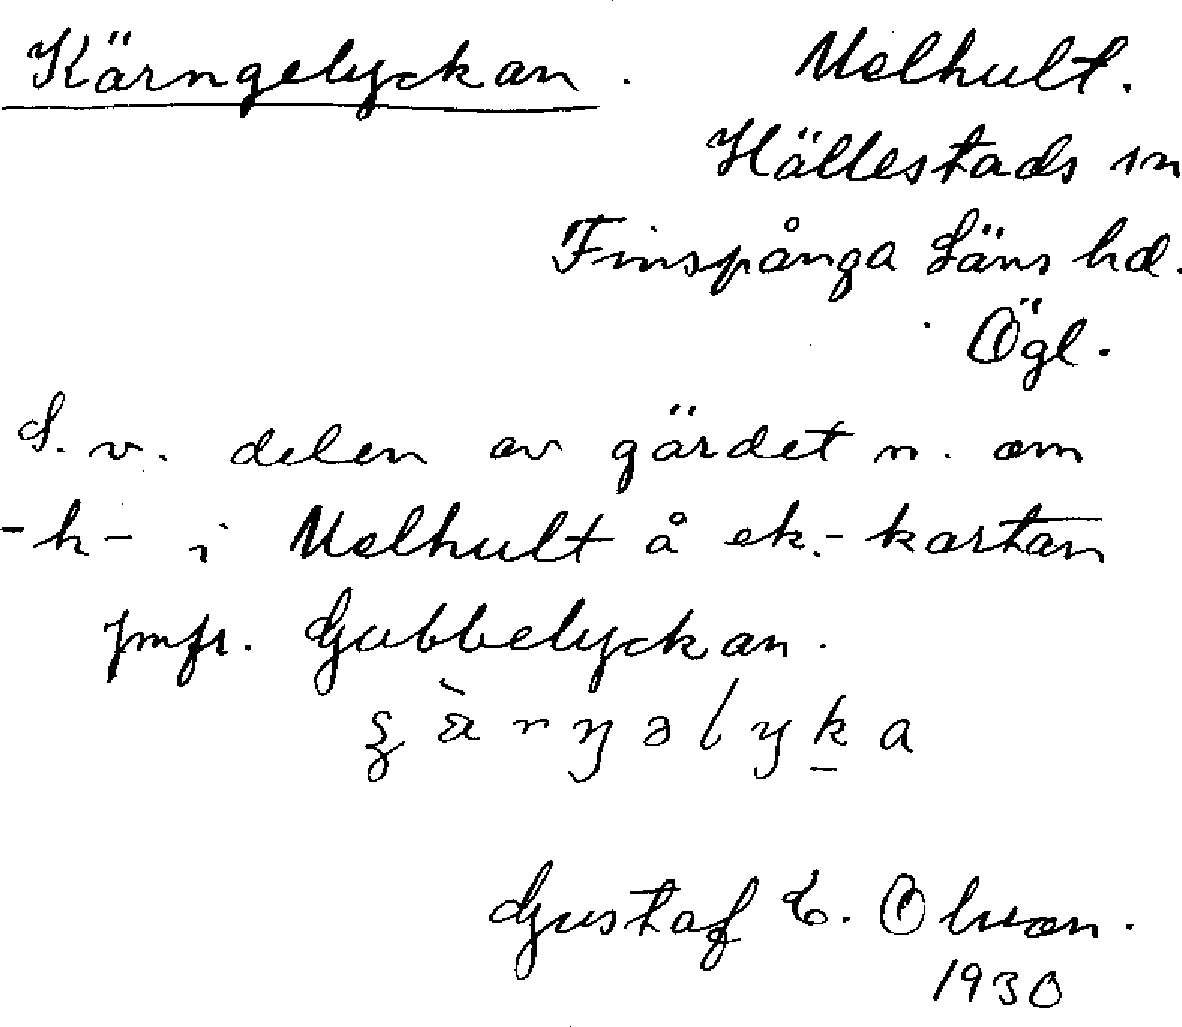 Kärngelyckan. Melhult.
Hällestads sn
Finspånga Läns hd.
Ögl.
S. v. delen av gärdet n. om
-h- i Melhult å ek.-kartan
jmfr. Gubbelyckan.
Gustaf E. Olsson.
1930